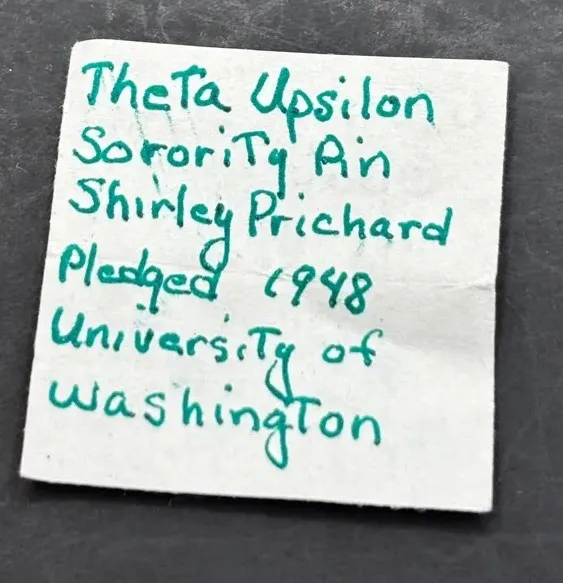 Theta Upsilon
Sorority Pin
Shirley Prichard
Pledged 1948
University of
Washington